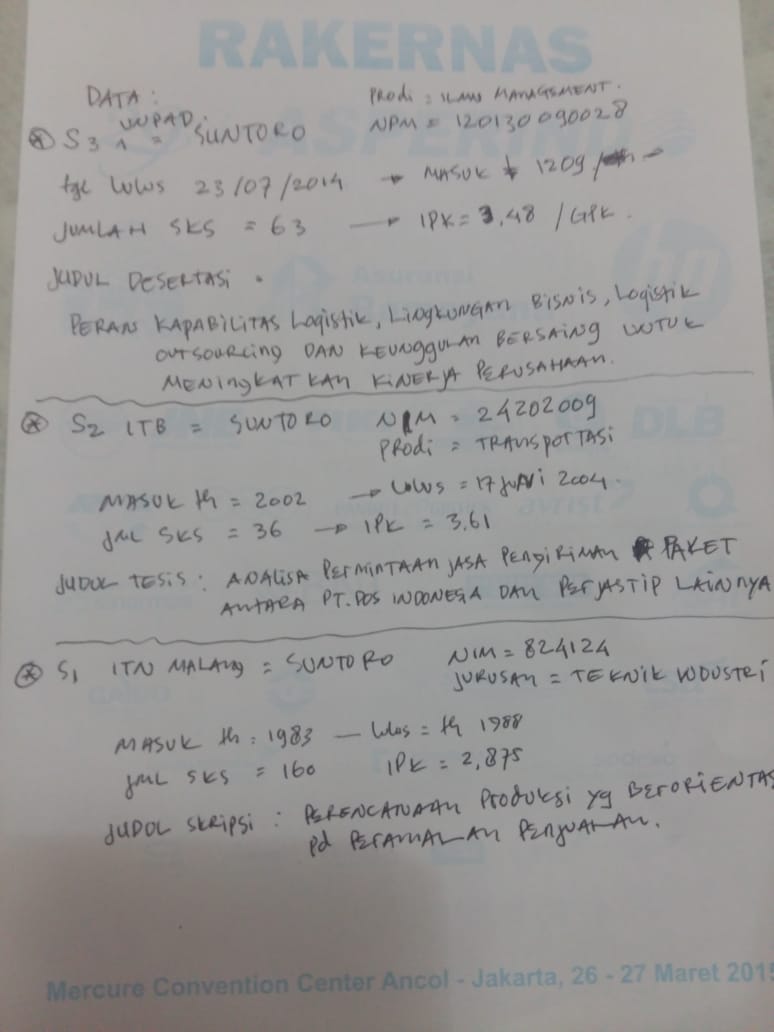 RAKERNAS
ASPERINDO
DATA :
Prodi : ILMU MANAGEMENT.
S3 UNPAD = SUNTORO NPM = 120130090028
tgl Lulus 23/07/2014 → MASUK 1209
JUMLAH SKS = 63 → IPK = 3,48 / GPK.
JUDUL DESERTASI :
PERAN KAPABILITAS Logistik, Lingkungan BISNIS, Logistik
OUTSOURCING DAN KEUNGGULAN BERSAING UNTUK
MENINGKATKAN KINERJA PERUSAHAAN.
S2 ITB = SUNTORO NIM = 24202009
PRodi = TRANSPORTASI
MASUK th = 2002 → Lulus = 17 JUNI 2004
JML SKS = 36 → IPK = 3,61
JUDUL TESIS : ANALISA PERMINTAAN JASA PENGIRIMAN PAKET
ANTARA PT. POS INDONESA DAN PERJASTIP LAINNYA
S1 ITN MALANG = SUNTORO NIM = 824124
JURUSAN = TEKNIK INDUSTRI
MASUK th : 1983 — Lulus = th 1988
JML SKS = 160 IPK = 2,875
JUDUL SKRIPSI : PERENCANAAN Produksi yg BERORIENTAS
pd PERAMALAN PENJUALAN.
Mercure Convention Center Ancol - Jakarta, 26 - 27 Maret 2015